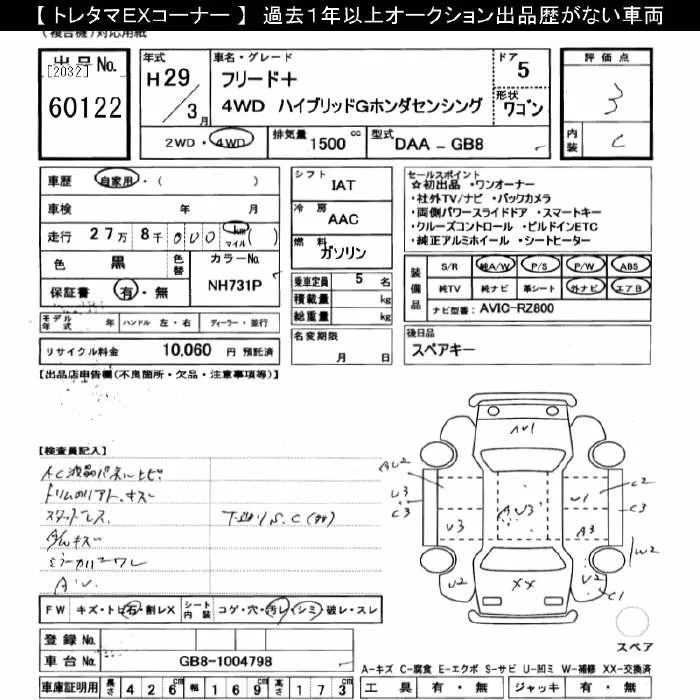 【 トレタマEXコーナー 】 過去1年以上オークション出品歴がない車両
(複合機)対応用紙
出品No.
[2032]
60122
年式
H29
3月
車名・グレード
フリード＋
4WD ハイブリッドGホンダセンシング
ドア
5
形状
ワゴン
2WD・4WD
排気量
1500 cc
型式
DAA - GB8
評価点
3
内装
C
車歴
自家用・( )
車検 年 月
走行 27万8千000 km マイル ( )
色 黒
色替
カラーNo.
NH731P
保証書 有・無
モデル年式 年 ハンドル 左・右 ディーラー・並行
リサイクル料金 10,060 円 預託済
シフト
IAT
冷房
AAC
燃料
ガソリン
乗車定員 5 名
積載量 kg
総重量 kg
名変期限
月 日
セールスポイント
☆初出品 ・ワンオーナー
・社外TV/ナビ ・バックカメラ
・両側パワースライドドア ・スマートキー
・クルーズコントロール ・ビルドインETC
・純正アルミホイール ・シートヒーター
装備品
S/R 純A/W P/S P/W ABS
純TV 純ナビ 革シート 外ナビ エアB
ナビ型番: AVIC-RZ800
後日品
スペアキー
【出品店申告欄(不良箇所・欠品・注意事項等)】
【検査員記入】
AC液晶パネルヒビ
AV
F W キズ・トビ石・割レX
シート内装 コゲ・穴・汚レ・シミ・破レ・スレ
登録 No.
車台 No. GB8-1004798
車庫証明用 長さ 426cm 幅 169cm 高さ 173cm
AV1
AU2
U3
C3
U3
AU3
U1
A3
C2
C3
W2
U2
XX
U2
C1
スペア
A-キズ C-腐食 E-エクボ S-サビ U-凹ミ W-補修 XX-交換済
工具 有・無 ジャッキ 有・無